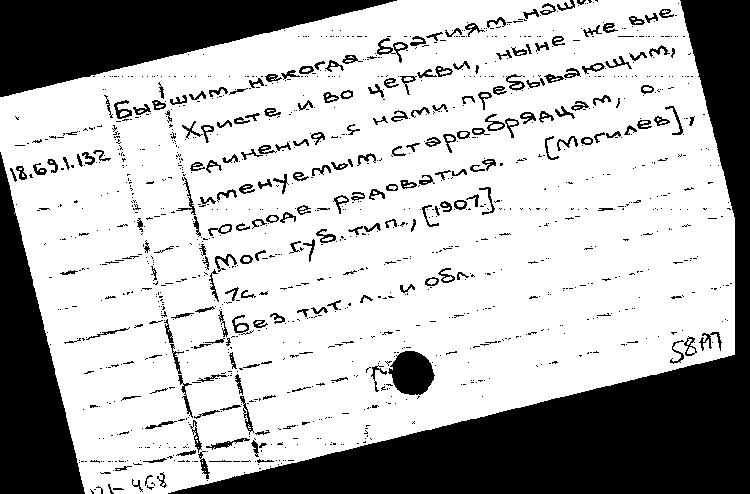 Бывшим некогда братиям наши
Христе и во церкви, ныне же вне
18.69.1.132
единения с нами пребывающим,
именуемым старообрядцам, о
господе радоватися. - [Могилев],
Мог. губ. тип., [1907].
7с.
Без тит. л. и обл.
58М
468